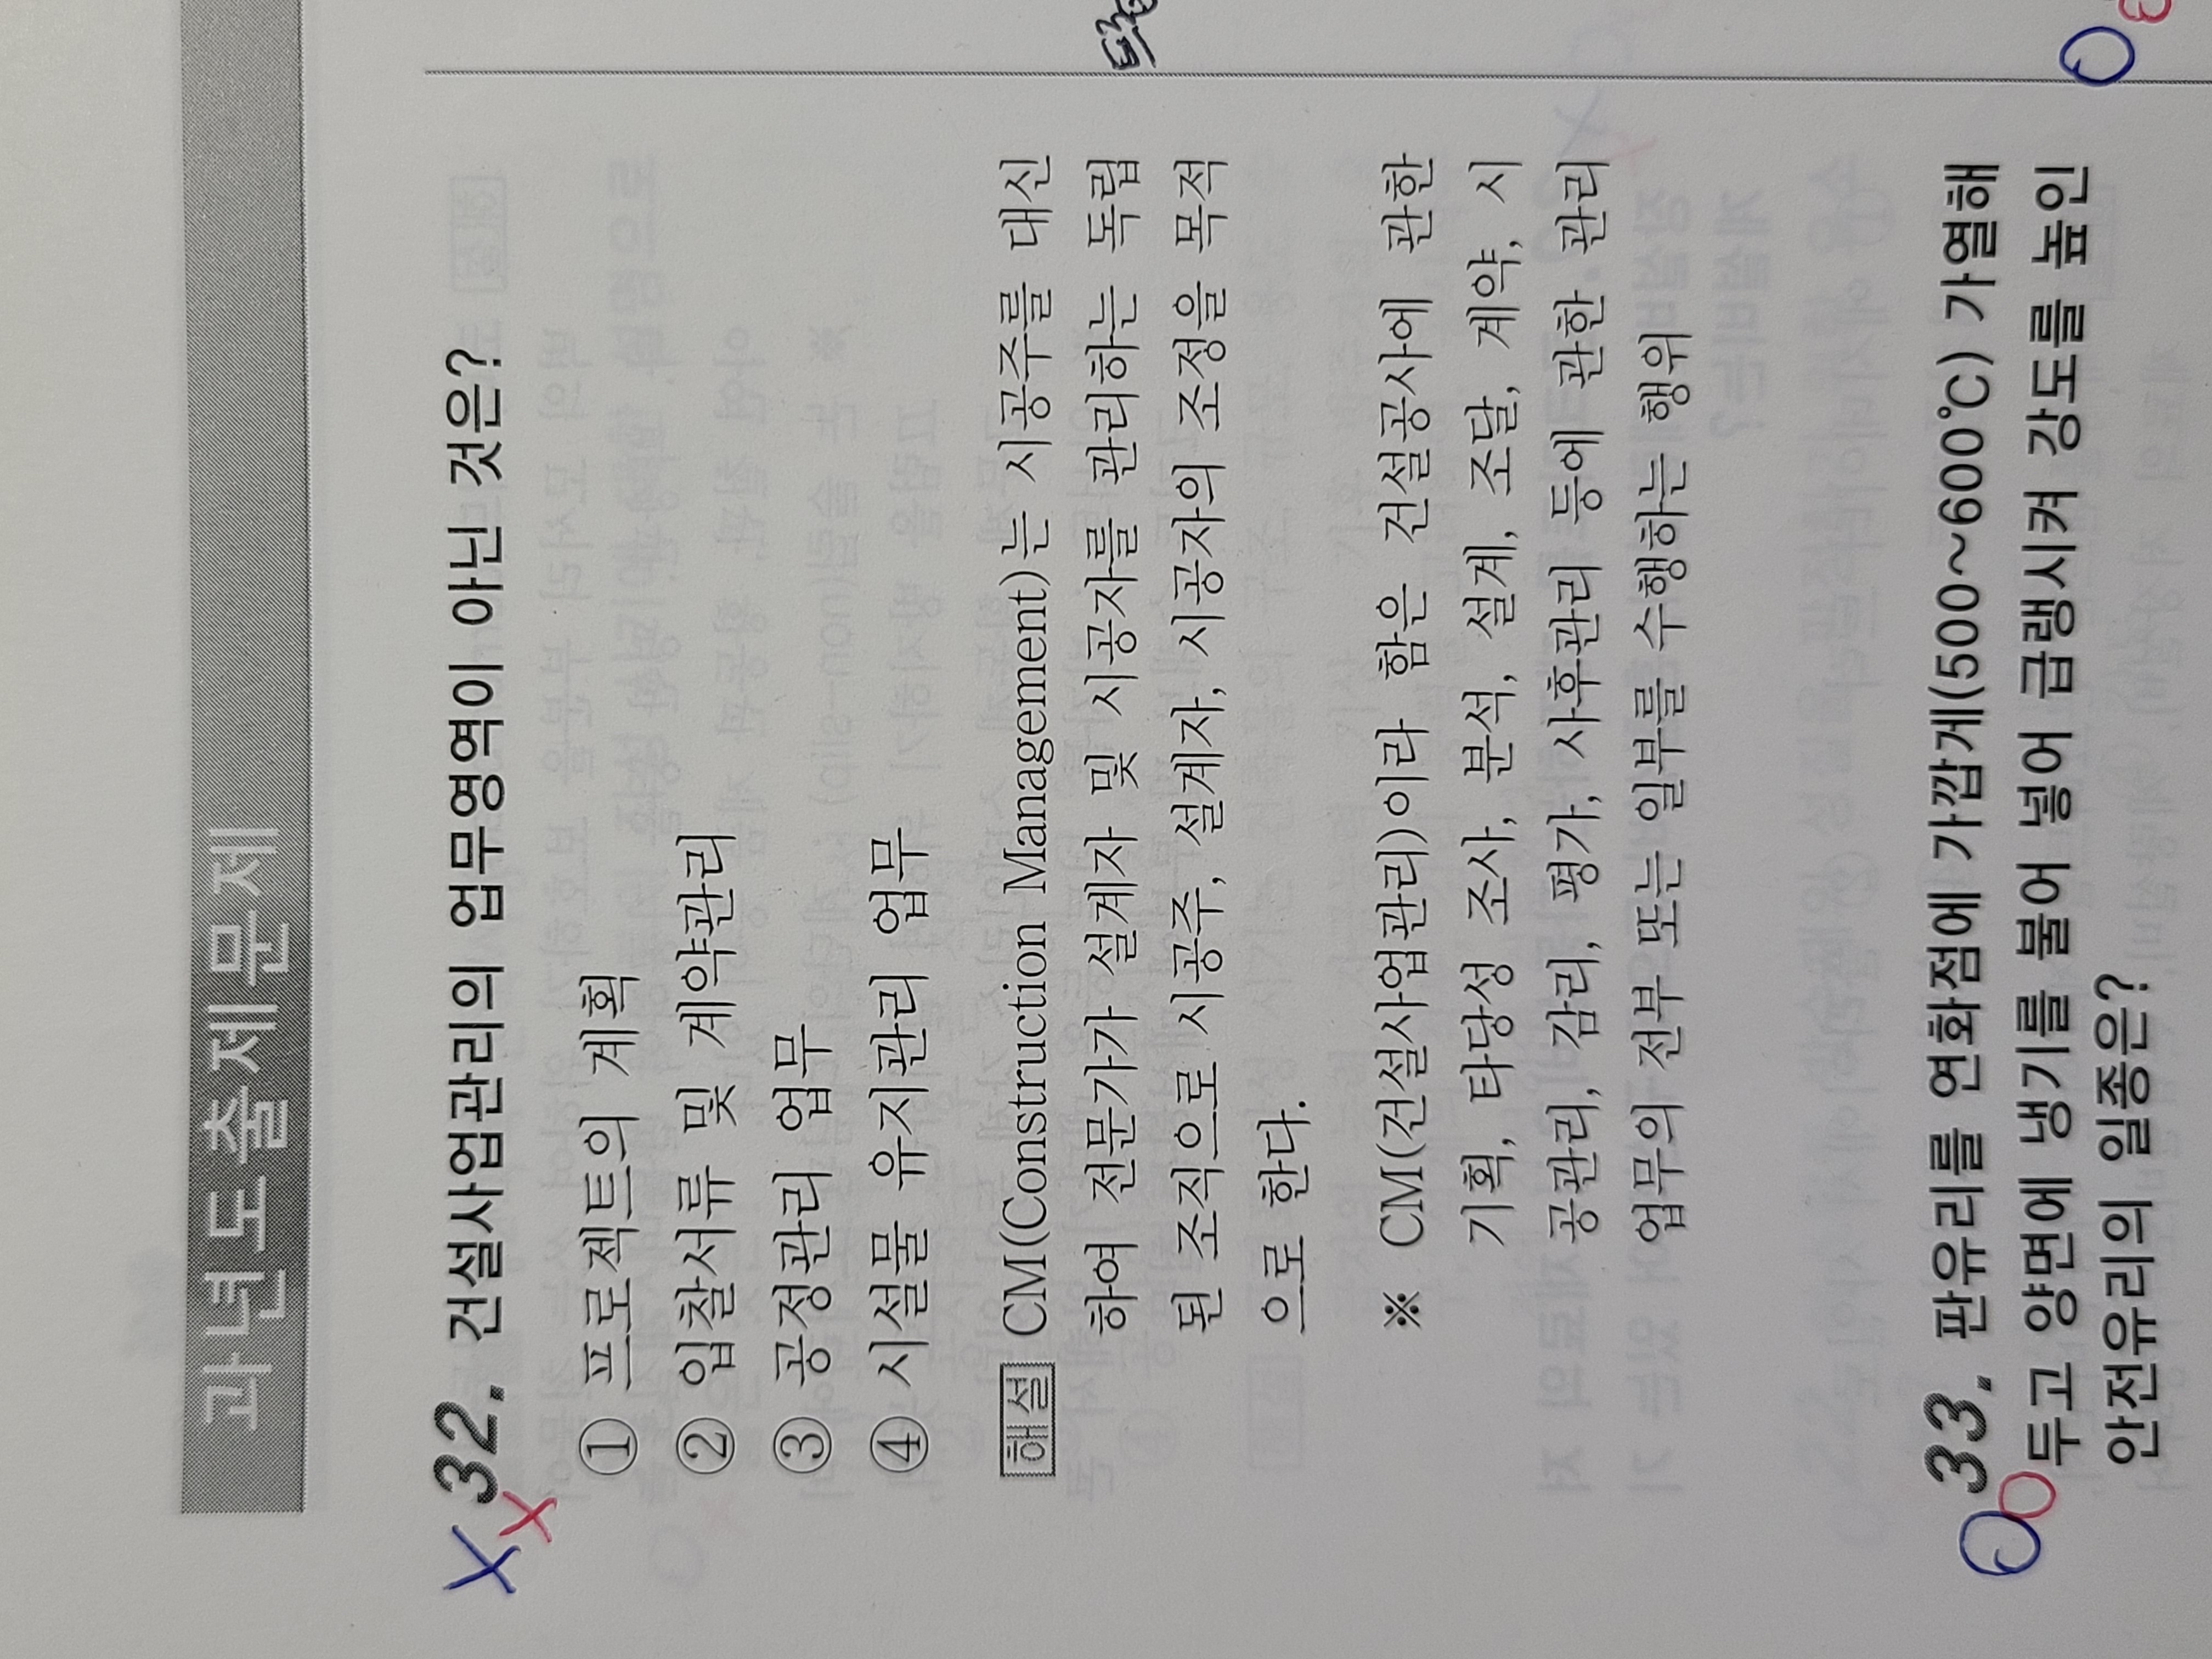 과년도출제문제
32. 건설사업관리의 업무영역이 아닌 것은?
① 프로젝트의 계획
② 입찰서류 및 계약관리
③ 공정관리 업무
④ 시설물 유지관리 업무
해설 CM(Construction Management)는 시공주를 대신
하여 전문가가 설계자 및 시공자를 관리하는 독립
된 조직으로 시공주, 설계자, 시공자의 조정을 목적
으로 한다.
※ CM(건설사업관리)이라 함은 건설공사에 관한
기획, 타당성 조사, 분석, 설계, 조달, 계약, 시
공관리, 감리, 평가, 사후관리 등에 관한 관리
업무의 전부 또는 일부를 수행하는 행위
33. 판유리를 연화점에 가깝게(500~600℃) 가열해
두고 양면에 냉기를 불어 넣어 급랭시켜 강도를 높인
안전유리의 일종은?